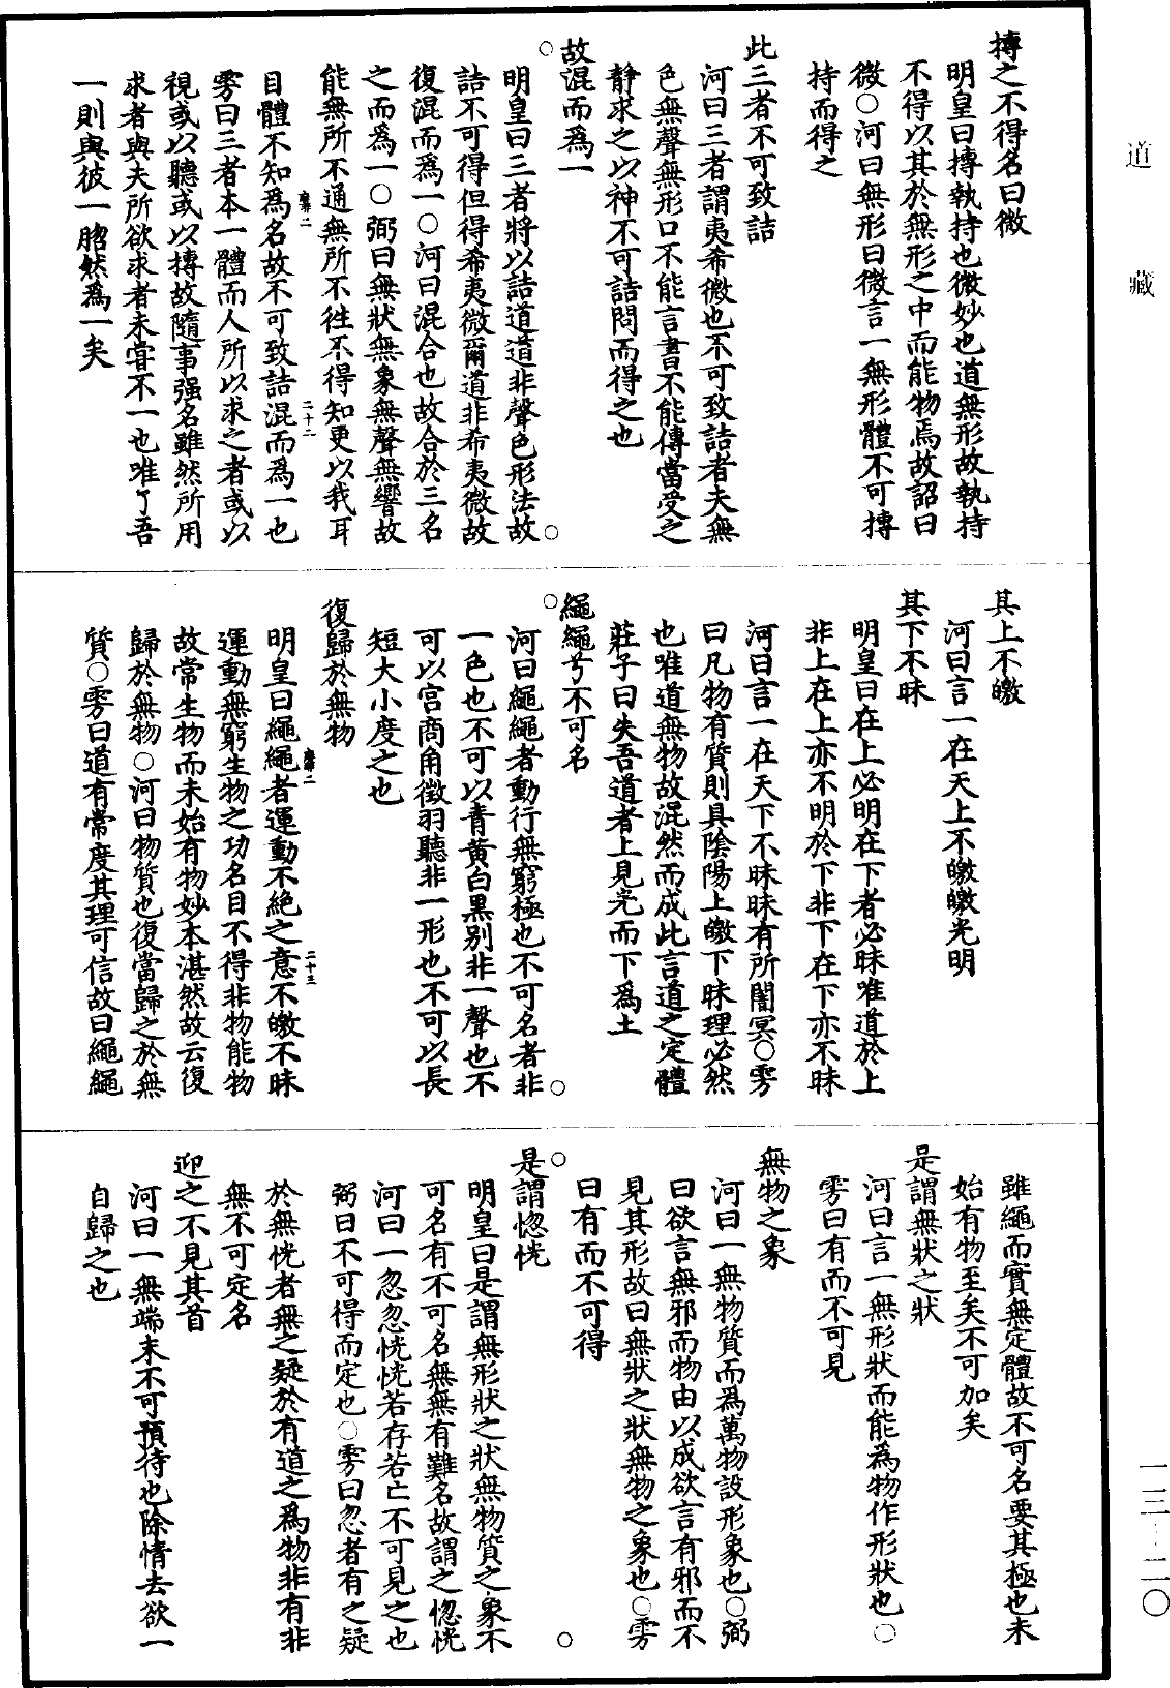 道藏
搏之不得名曰微
明皇曰搏執持也微妙也道無形故執持
不得以其於無形之中而能物焉故詔曰
微○河曰無形曰微言一無形體不可摶
持而得之
此三者不可致詰
河曰三者謂夷希微也不可致詰者夫無
色無聲無形口不能言書不能傳當受之
靜求之以神不可詰問而得之也
故混而為一
明皇曰三者將以詰道道非聲色形法故
詰不可得但得希夷微爾道非希夷微故
復混而為一○河曰混合也故合於三名
之而為一○弼曰無狀無象無聲無響故
能無所不通無所不徃不得知更以我耳
目體不知為名故不可致詰混而為一也
雱曰三者本一體而人所以求之者或以
視或以聽或以摶故隨事强名雖然所用
求者與夫所欲求者未甞不一也唯了吾
一則與彼一脗然為一矣
其上不皦
河曰言一在天上不皦皦光明
其下不昧
明皇曰在上必明在下者必昧唯道於上
非上在上亦不明於下非下在下亦不昧
河曰言一在天下不昧昧有所闇冥○雱
曰凡物有質則具陰陽上皦下昧理必然
也唯道無物故混然而成此言道之定體
莊子曰失吾道者上見光而下為土
繩繩兮不可名
河曰繩繩者動行無窮極也不可名者非
一色也不可以青黃白黑别非一聲也不
可以宮商角徵羽聽非一形也不可以長
短大小度之也
復歸於無物
明皇曰繩繩者運動不絶之意不皦不昧
運動無窮生物之功名目不得非物能物
故常生物而未始有物妙本湛然故云復
歸於無物○河曰物質也復當歸之於無
質○雱曰道有常度其理可信故曰繩繩
雖繩而實無定體故不可名要其極也未
始有物至矣不可加矣
是謂無狀之狀
河曰言一無形狀而能為物作形狀也○
雱曰有而不可見
無物之象
河曰一無物質而為萬物設形象也○弼
曰欲言無邪而物由以成欲言有邪而不
見其形故曰無狀之狀無物之象也○雱
曰有而不可得
是謂惚恍
明皇曰是謂無形狀之狀無物質之象不
可名有不可名無無有難名故謂之惚恍
河曰一忽忽恍恍若存若亡不可見之也
弼曰不可得而定也○雱曰忽者有之疑
於無恍者無之疑於有道之為物非有非
無不可定名
迎之不見其首
河曰一無端末不可預待也除情去欲一
自歸之也
一三-二〇